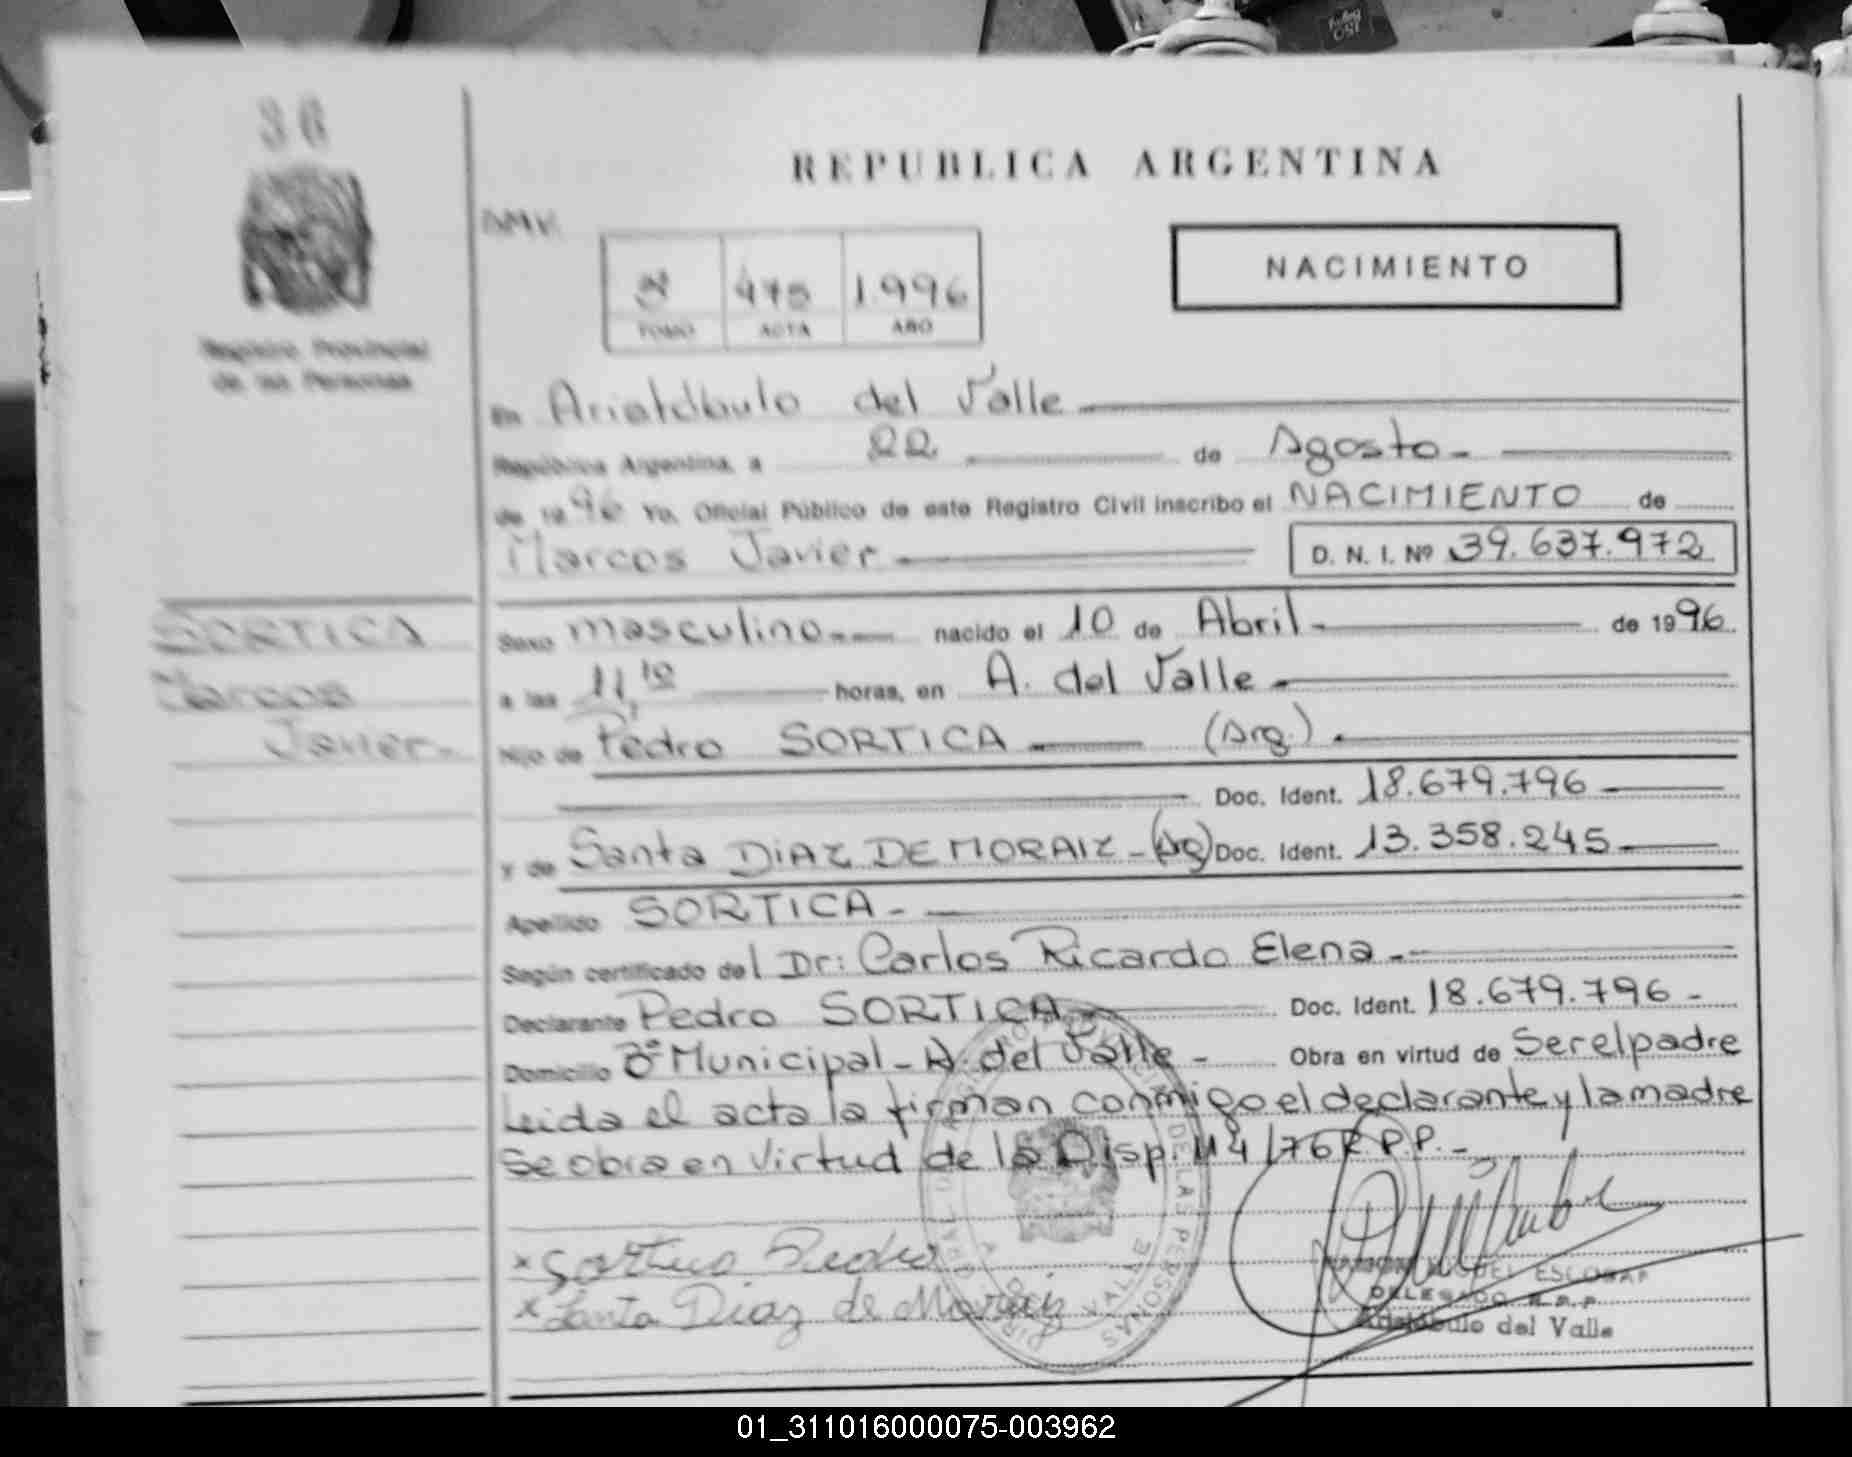 36
REPUBLICA ARGENTINA
NACIMIENTO
475 1.996
TOMO ACTA AÑO
Registro Provincial
de las Personas
En Aristóbulo del Valle
República Argentina, a 22 de Agosto
de 1996 Yo, Oficial Público de este Registro Civil inscribo el NACIMIENTO de
Marcos Javier D. N. I. Nº 39.637.972
SORTICA
Marcos
Javier
Sexo masculino nacido el 10 de Abril de 1996
a las 11,10 horas, en A. del Valle
Hijo de Pedro SORTICA (Arg.)
Doc. Ident. 18.679.796
y de Santa DIAZ DE MORAIZ - (Arg) Doc. Ident. 13.358.245
Apellido SORTICA
Según certificado del Dr: Carlos Ricardo Elena
Declarante Pedro SORTICA Doc. Ident. 18.679.796
Domicilio Bº Municipal - A. del Valle - Obra en virtud de Ser el padre
Leida el acta la firman conmigo el declarante y la madre
Se obra en virtud de la Disp. 114/76 R.P.P.
x Sortica Pedro
x Santa Diaz de Moraiz
MIGUEL ESCOBAR
DELEGADO R.P.P.
Aristóbulo del Valle
01_311016000075-003962